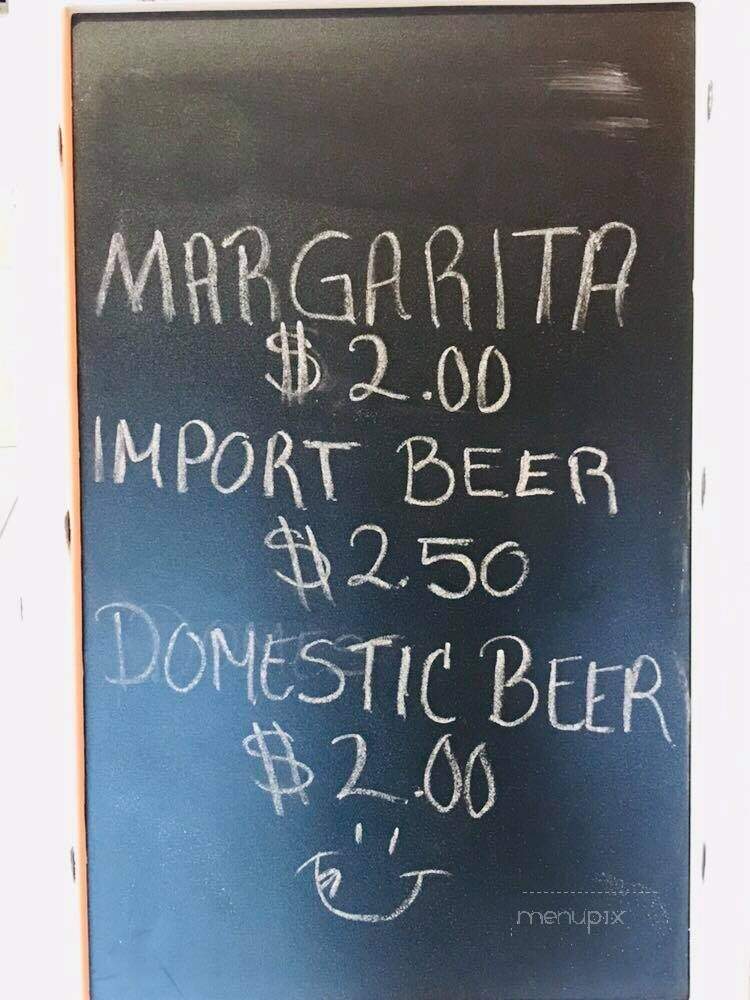 MARGARITA
$2.00
IMPORT BEER
$2.50
DOMESTIC BEER
$2.00
menupix